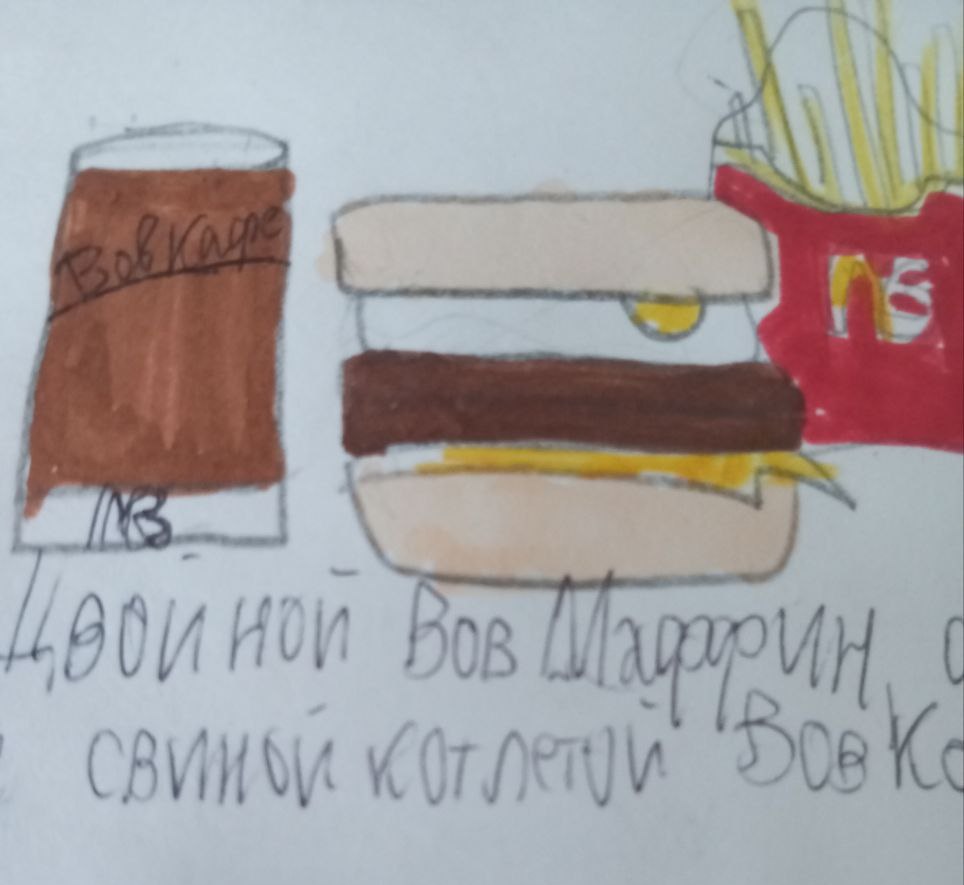 Вов Кафе
МВ
МВ
Двойной Вов Маффин
свиной котлетой Вов